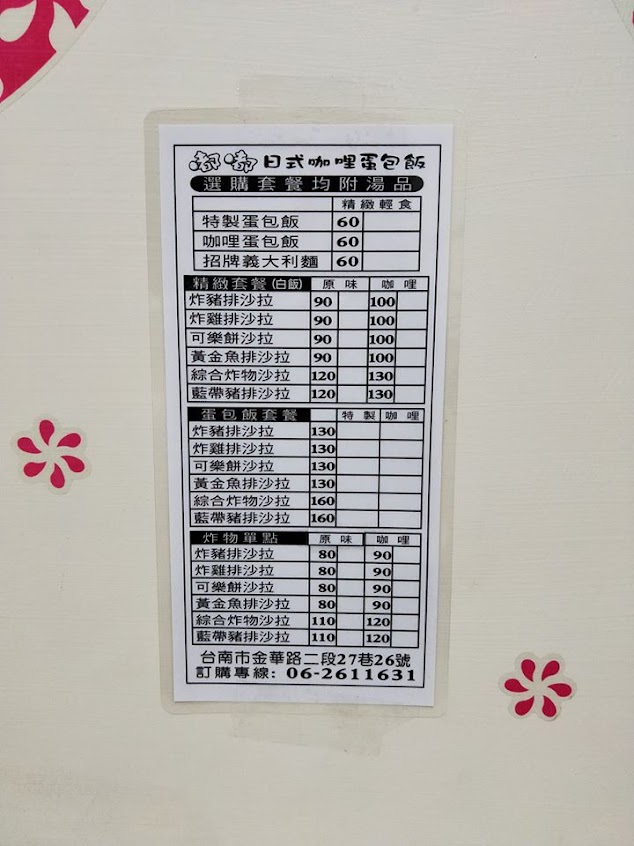 嘟嘟日式咖哩蛋包飯
選購套餐均附湯品
精緻輕食
特製蛋包飯 60
咖哩蛋包飯 60
招牌義大利麵 60
精緻套餐(白飯) 原味 咖哩
炸豬排沙拉 90 100
炸雞排沙拉 90 100
可樂餅沙拉 90 100
黃金魚排沙拉 90 100
綜合炸物沙拉 120 130
藍帶豬排沙拉 120 130
蛋包飯套餐 特製 咖哩
炸豬排沙拉 130
炸雞排沙拉 130
可樂餅沙拉 130
黃金魚排沙拉 130
綜合炸物沙拉 160
藍帶豬排沙拉 160
炸物單點 原味 咖哩
炸豬排沙拉 80 90
炸雞排沙拉 80 90
可樂餅沙拉 80 90
黃金魚排沙拉 80 90
綜合炸物沙拉 110 120
藍帶豬排沙拉 110 120
台南市金華路二段27巷26號
訂購專線: 06-2611631